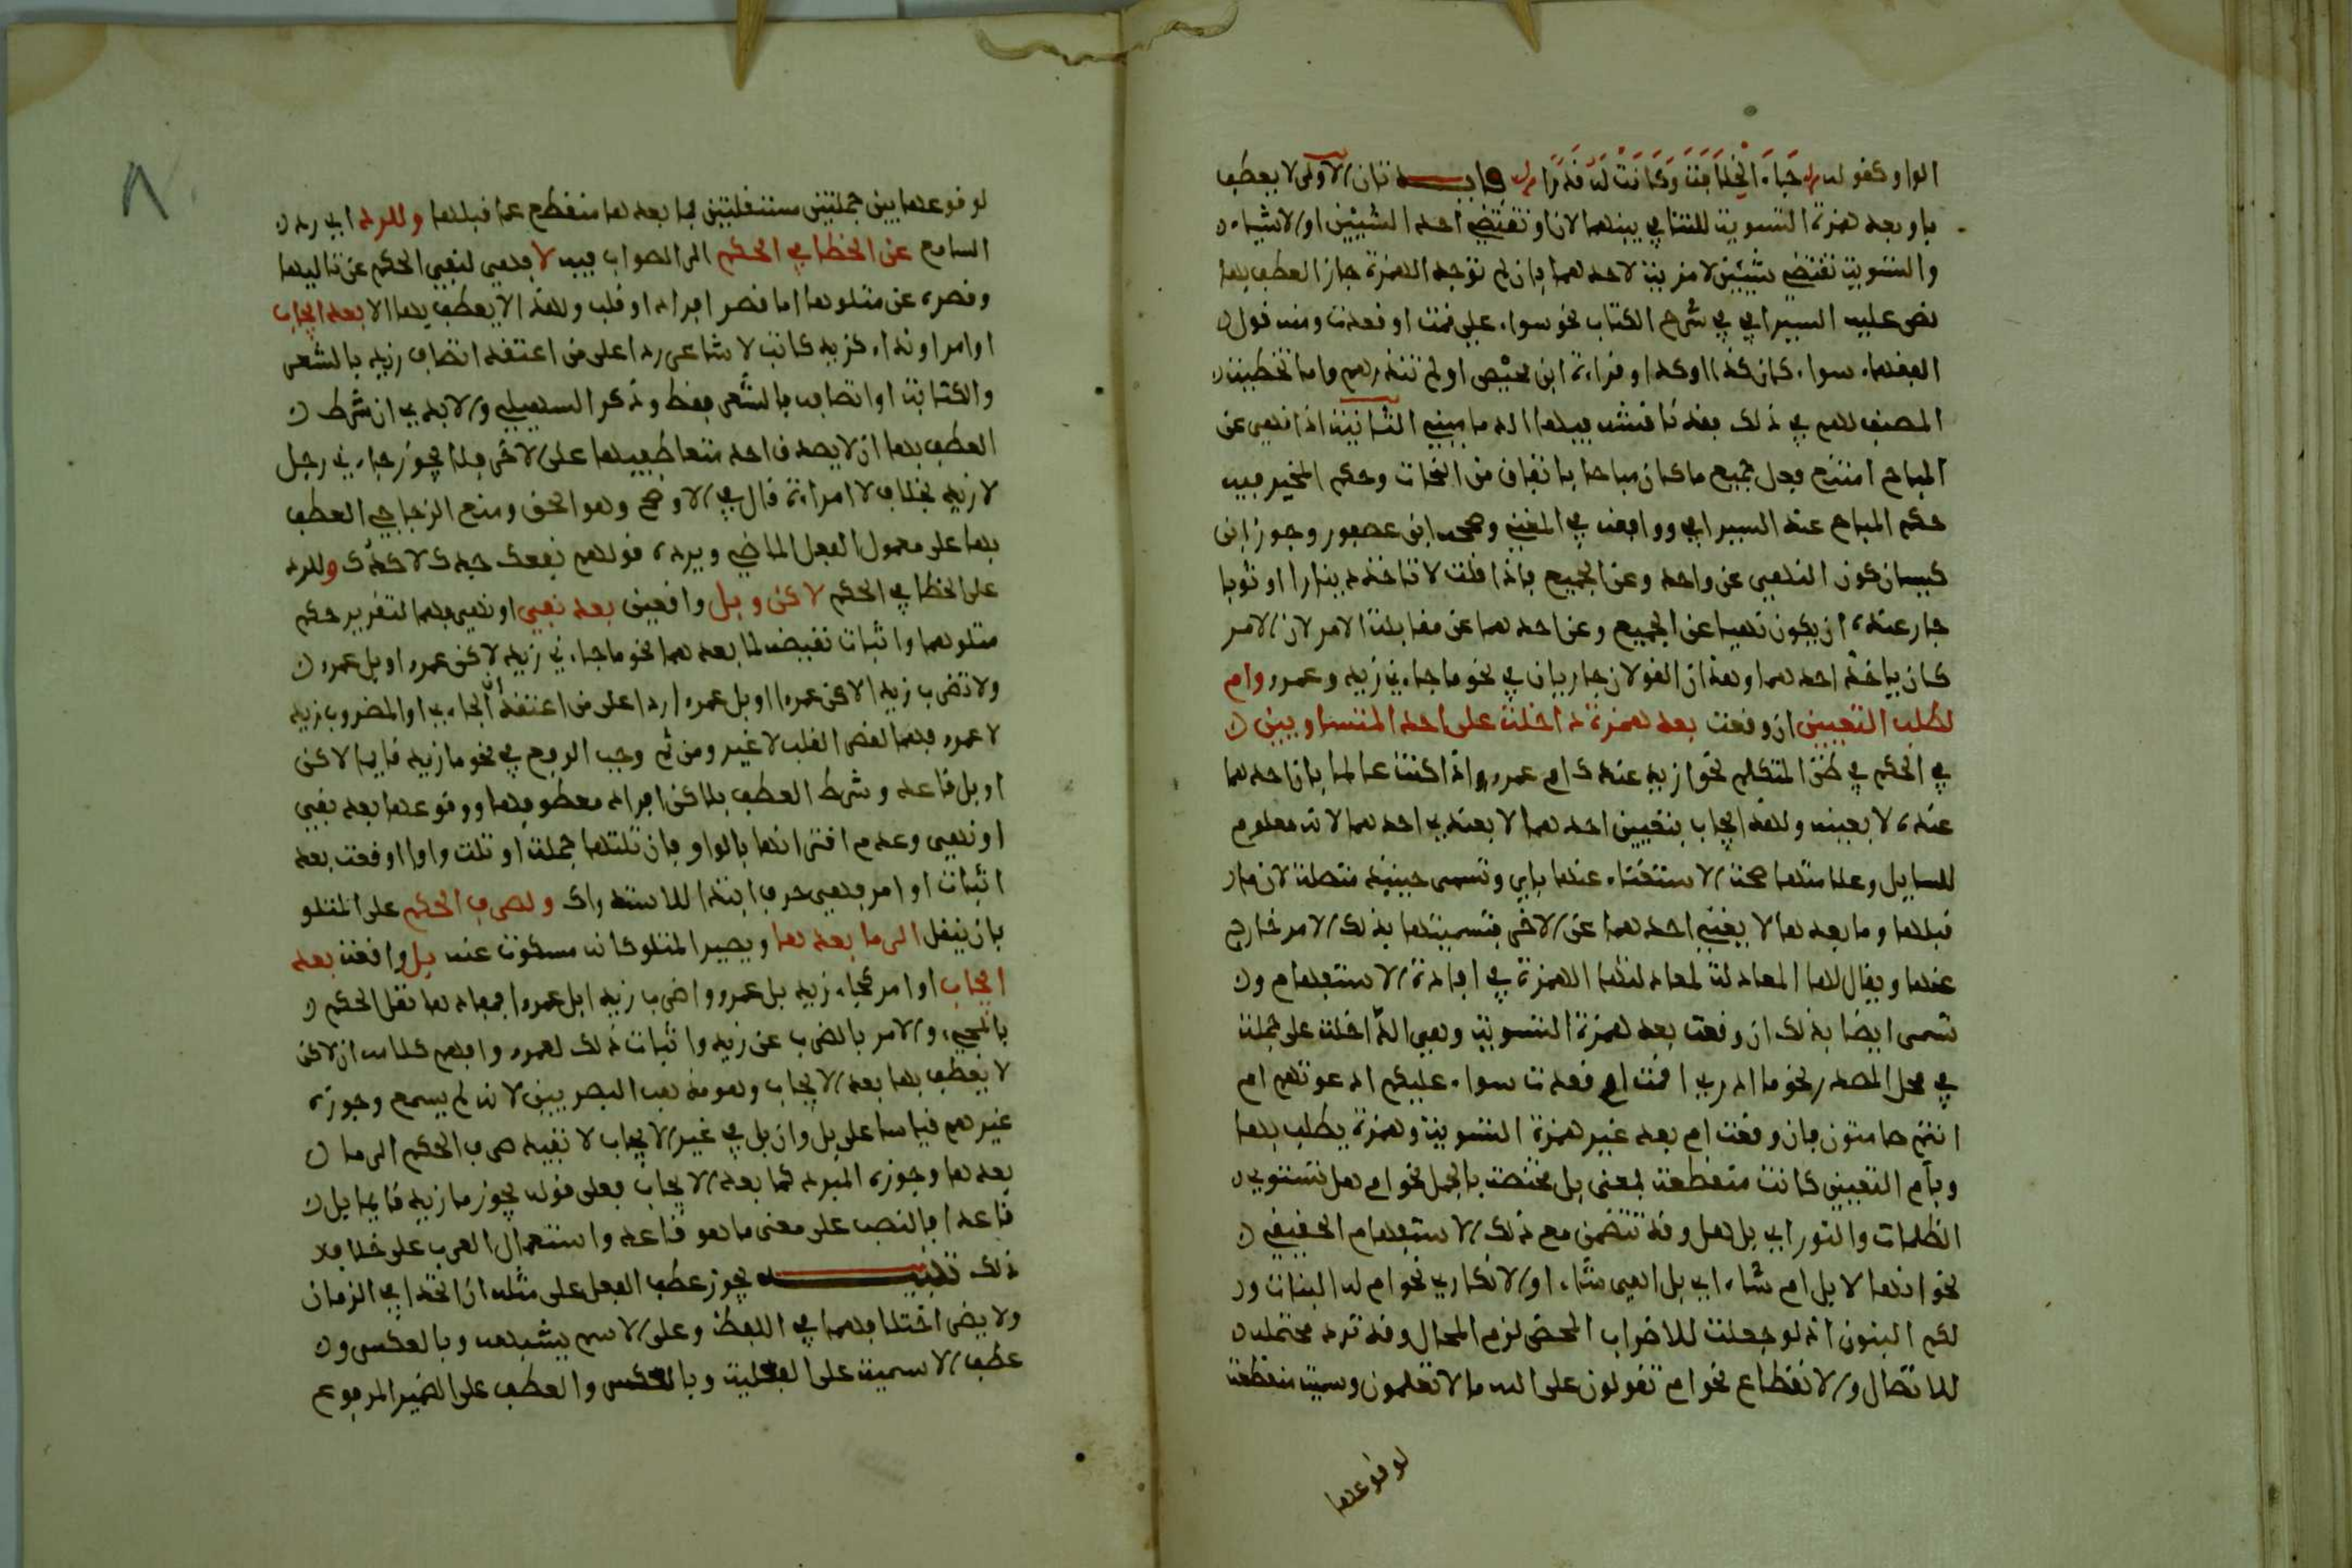 الواو كقوله جَاءَ الْخِلَافَةَ وَكَانَتْ لَهُ قَدَرًا فايدتان الاولى لا يعطف
باو بعد همزة التسوية للتنافي بينهما لان او تقتضي احد الشيئين او الاشياء
والتسوية تقتضي شيئين لا مزية لاحدهما فان لم توجد الهمزة جاز العطف بها
نص عليه السيرافي في شرح الكتاب نحو سواء علي قمت او قعدت ومنه قول
الفقهاء سواء كان كذا اوكذا وقراءة ابن محيْصن او لم تنذرهم واما تخطية
المصنف لهم في ذلك فقد ناقشه فيها الدماميني الثانية اذا نهي عن
المباح امتنع فعل جميع ما كان مباحا باتفاق من النحات وحكم المخير فيه
حكم المباح عند السيرافي ووافقه في المغني وصححه ابن عصفور وجوز ابن
كيسان كون النهي عن واحد وعن الجميع فاذا قلت لا تاخذ دينارا او ثوبا
جاز عنده ان يكون نهيا عن الجميع وعن احدهما عن مقابلة الامر لان الامر
كان ياخذ احدهما وهذان القولان جاريان في نحو ما جاءني زيد وعمرو وام
لطلب التعيين ان وقعت بعد همزة داخلة على احد المتساويين
في الحكم في ظن المتكلم نحو ازيد عندك ام عمرو واذا كنت عالما بان احدهما
عنده لا بعينه ولهذا يجاب بتعيين احدهما لا بعندي احدهما لانه معلوم
للسايل وعلامتها صحة الاستغناء عنها باي وتسمى حينيذ متصلة لان ما
قبلها وما بعدها لا يغني احدهما عن الاخر فتسميتها بذلك لامر خارج
عنها ويقال لها المعادلة لمعادلتها الهمزة في افادة الاستفهام و
تسمى ايضا بذلك ان وقعت بعد همزة التسوية وهي الداخلة على جملة
في محل المصدر نحو ما ادري اقمت ام قعدت سواء عليكم ادعوتهم ام
انتم صامتون فان وقعت ام بعد غير همزة التسوية وهمزة يطلب بها
وبام التعيين كانت منقطعة بمعنى بل مختصة بالجمل نحو ام هل تستوي
الظلمات والنور اي بل هل وقد تتضمن مع ذلك الاستفهام الحقيقي
نحو انها لابل ام شاء اي بل اهي شاء او الانكاري نحو ام له البنات و
لكم البنون اذ لو جعلت للاضراب المحض لزم المحال وقد ترد محتملة
للاتصال والانقطاع نحو ام تقولون على الله ما لا تعلمون وسميت منقطعة
لوقوعها
لوقوعها بين جملتين مستقلتين فما بعدها منقطع عما قبلها وللرد اي رد
السامع عن الخطا في الحكم الى الصواب فيه لا فهي لنفي الحكم عن تاليها
وقصره عن متلوها اما قصر افراد او قلب ولهذا لا يعطف بها الا بعد ايجاب
او امر او نداء كزيد كاتب لا شاعر ردا على من اعتقد اتصاف زيد بالشعر
والكتابة او اتصافه بالشعر فقط وذكر السهيلي والابدي ان شرط
العطف بها ان لا يصدق احد متعاطفيها على الاخر فلا يجوز جاءني رجل
لا زيد بخلاف لا امراة قال في الاوضح وهو الحق ومنع الزجاجي العطف
بها على معمول الفعل الماضي ويرده قولهم نفعك جدك لا كدك وللرد
على الخطا في الحكم لاكن وبل واقعين بعد نفي او نهي فهما لتقرير حكم
متلوهما واثبات نقيضه لما بعدهما نحو ما جاءني زيد لاكن عمرو او بل عمرو
ولا تضرب زيدا لاكن عمرا او بل عمرا ردا على من اعتقد ان الجاءي او المضروب زيد
لا عمرو فهما لقصر القلب لا غير ومن ثم وجب الرفع في نحو ما زيد قايما لاكن
او بل قاعد وشرط العطف بلاكن افراد معطوفها ووقوعها بعد نفي
او نهي وعدم اقترانها بالواو فان تلتها جملة او تلت واوا او وقعت بعد
اثبات او امر فهي حرف ابتدا للاستدراك ولصرف الحكم على المتلو
بان ينقل الى ما بعدها ويصير المتلو كانه مسكوت عنه بل واقعة بعد
ايجاب او امر كجاء زيد بل عمرو واضرب زيدا بل عمرا فمفادها نقل الحكم
بالمجيء والامر بالضرب عن زيد واثبات ذلك لعمرو وافهم كلامه ان لاكن
لا يعطف بها بعد الايجاب وهو مذهب البصريين لانه لم يسمع وجوزه
غيرهم قياسا على بل وان بل في غير الايجاب لا تفيد صرف الحكم الى ما
بعدها وجوزه المبرد كما بعد الايجاب فعلى قوله يجوز ما زيد قايما بل
قاعدا بالنصب على معنى ما هو قاعد واستعمال العرب على خلاف
ذلك تنبيه يجوز عطف الفعل على مثله ان اتحدا في الزمان
ولا يضر اختلافهما في اللفظ وعلى الاسم يشبهه وبالعكس و
عطف الاسمية على الفعلية وبالعكس والعطف على الضمير المرفوع